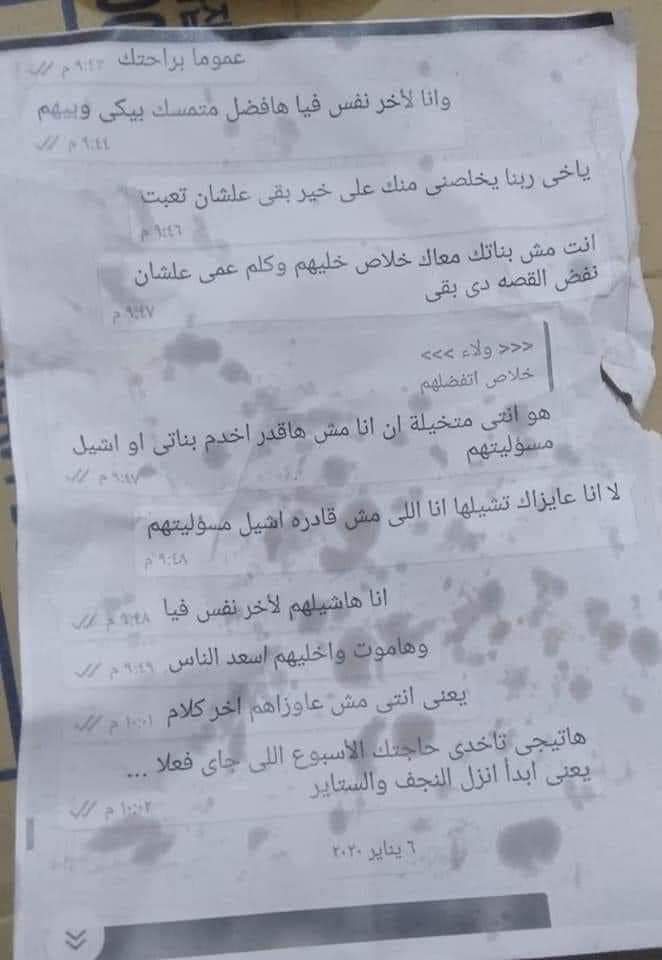 عموما براحتك ٩:٤٣ م
وانا لأخر نفس فيا هافضل متمسك بيكى وبيهم
٩:٤٤ م
ياخى ربنا يخلصنى منك على خير بقى علشان تعبت
٩:٤٦ م
انت مش بناتك معاك خلاص خليهم وكلم عمى علشان
نفض القصه دى بقى
٩:٤٧ م
<<< ولاء >>>
خلاص اتفضلهم
هو انتى متخيلة ان انا مش هاقدر اخدم بناتى او اشيل
مسؤليتهم
٩:٤٧ م
لا انا عايزاك تشيلها انا اللى مش قادره اشيل مسؤليتهم
٩:٤٨ م
انا هاشيلهم لأخر نفس فيا ٩:٤٨ م
وهاموت واخليهم اسعد الناس ٩:٤٩ م
يعنى انتى مش عاوزاهم اخر كلام ١٠:٠١ م
هاتيجى تاخدى حاجتك الأسبوع اللى جاى فعلا ...
يعنى ابدأ انزل النجف والستاير
١٠:٠٢ م
٦ يناير ٢٠٢٠